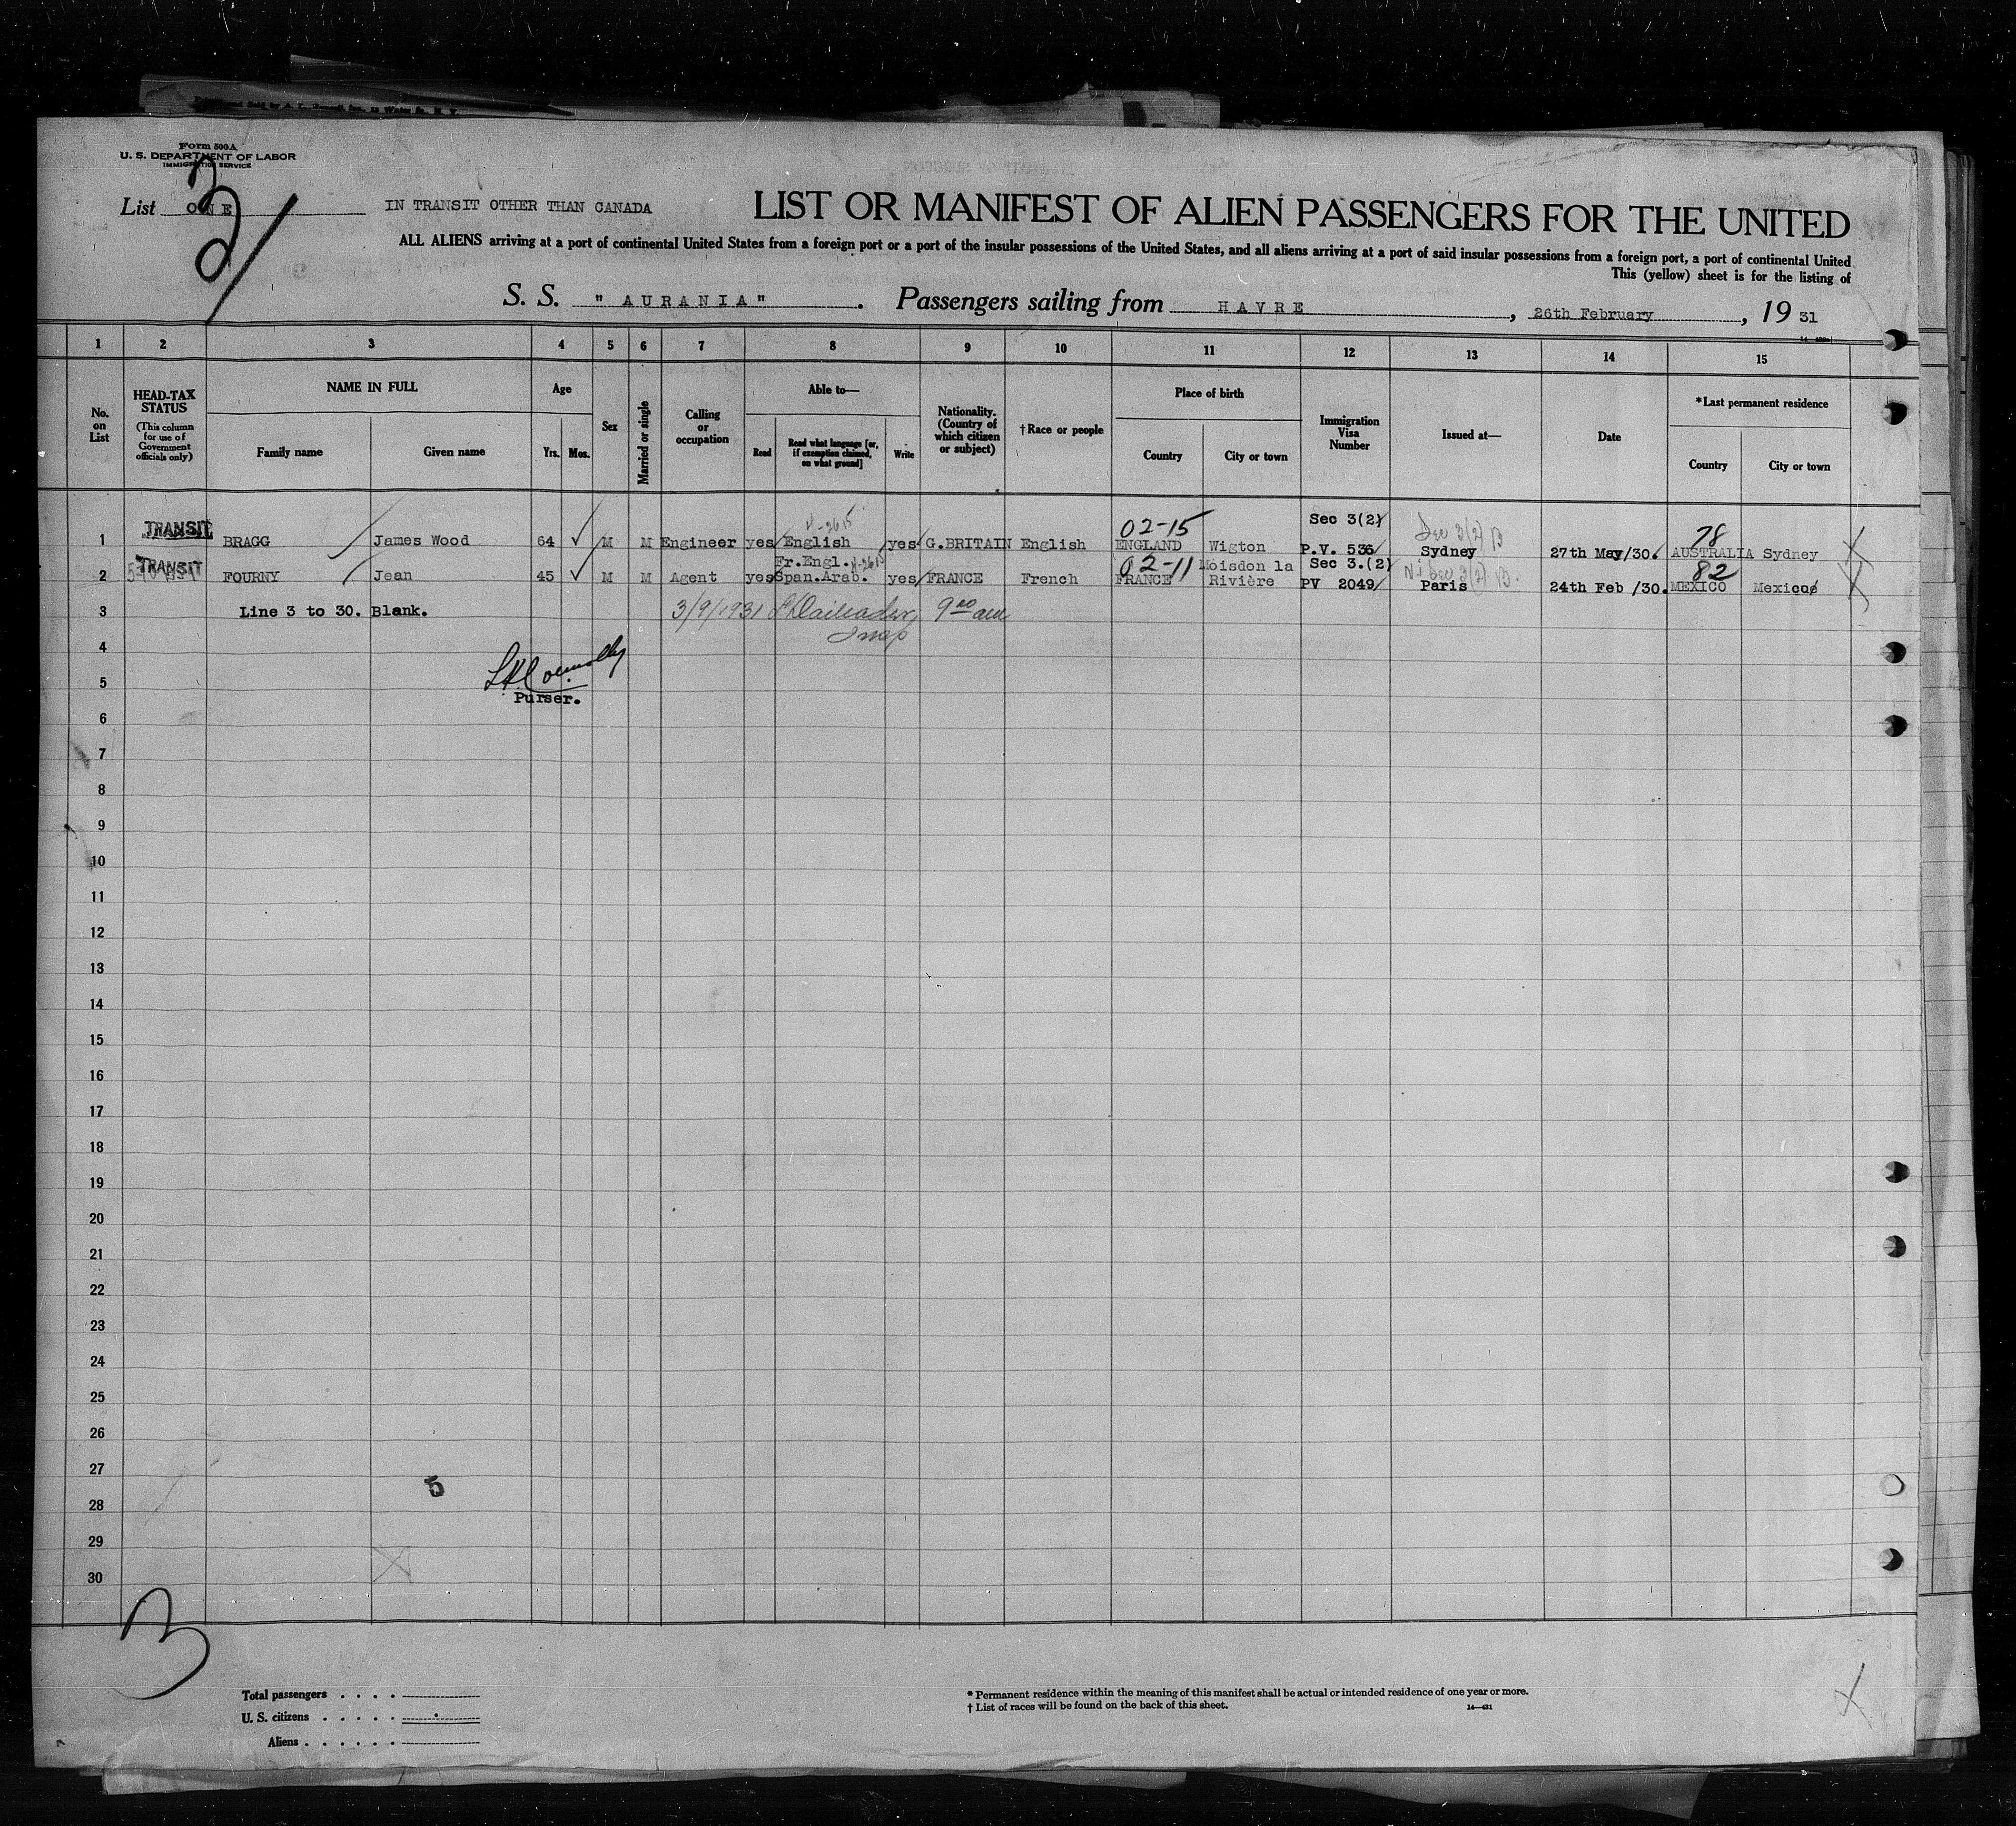 Form 500A
U. S. DEPARTMENT OF LABOR
IMMIGRATION SERVICE
List ONE
IN TRANSIT OTHER THAN CANADA
LIST OR MANIFEST OF ALIEN PASSENGERS FOR THE UNITED
ALL ALIENS arriving at a port of continental United States from a foreign port or a port of the insular possessions of the United States, and all aliens arriving at a port of said insular possessions from a foreign port, a port of continental United
This (yellow) sheet is for the listing of
S. S. " AURANIA " . Passengers sailing from HAVRE , 26th February , 19 31
1 2 3 4 5 6 7 8 9 10 11 12 13 14 15
No. on List
HEAD-TAX STATUS
(This column for use of Government officials only)
NAME IN FULL
Family name
Given name
Age
Yrs. Mos.
Sex
Married or single
Calling or occupation
Able to—
Read
Read what language [or, if exemption claimed, on what ground]
Write
Nationality. (Country of which citizen or subject)
†Race or people
Place of birth
Country
City or town
Immigration Visa Number
Issued at—
Date
*Last permanent residence
Country
City or town
02-15 Sec 3(2) Sec 3(2) B 78
1 TRANSIT BRAGG James Wood 64 M M Engineer yes English yes G.BRITAIN English ENGLAND Wigton P.V. 536 Sydney 27th May/30. AUSTRALIA Sydney
Fr.Engl. 02-11 Moisdon la Sec 3.(2) 82
2 TRANSIT FOURNY Jean 45 M M Agent yes Span.Arab. yes FRANCE French FRANCE Rivière PV 2049 Paris 24th Feb /30. MEXICO Mexico
3 Line 3 to 30. Blank. 3/9/1931 9 00 am
Insp
4
5
Purser.
6
7
8
9
10
11
12
13
14
15
16
17
18
19
20
21
22
23
24
25
26
27
5
28
29
30
3
Total passengers . . . .
U. S. citizens . . . . .
Aliens . . . . . .
* Permanent residence within the meaning of this manifest shall be actual or intended residence of one year or more.
† List of races will be found on the back of this sheet.
14—431